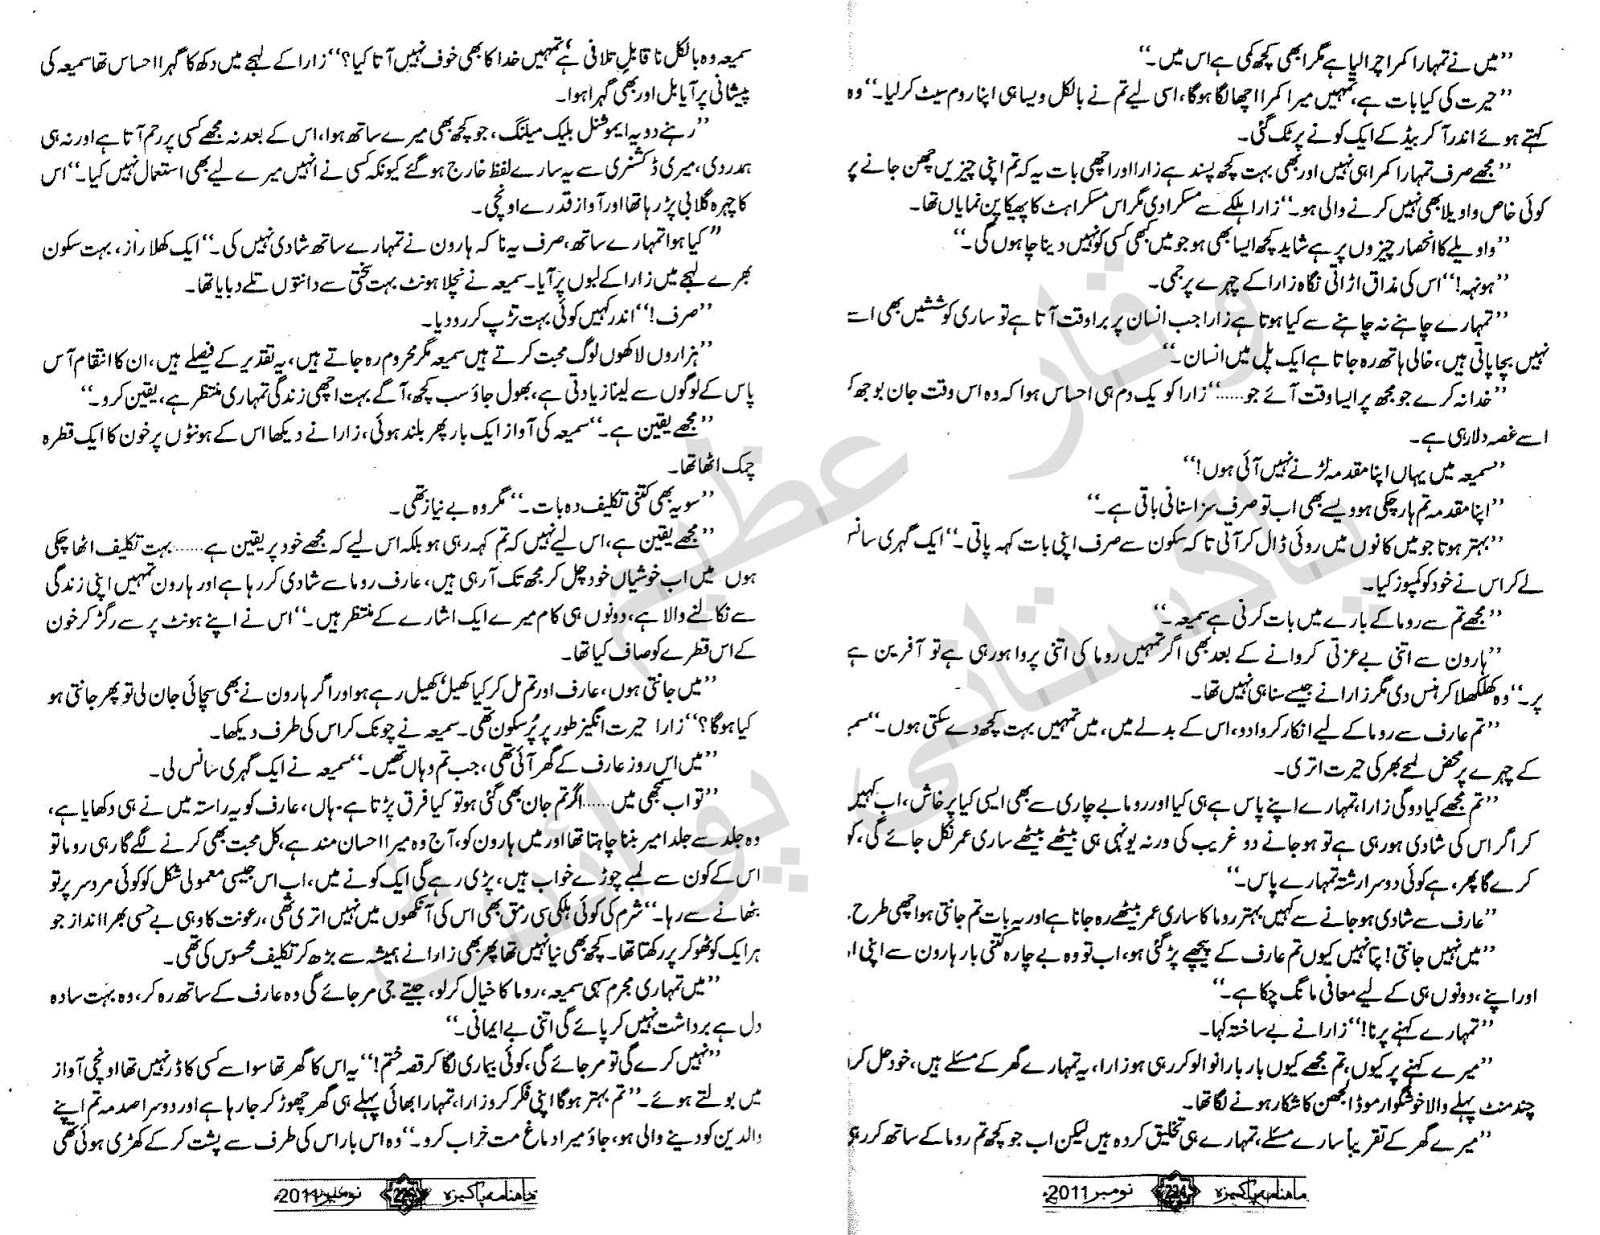 ”میں نے تمہارا کمرا چرا لیا ہے مگر ابھی کچھ کمی ہے اس میں۔“
”حیرت کی کیا بات ہے، تمہیں میرا کمرا اچھا لگا ہوگا، اسی لیے تم نے بالکل ویسا ہی اپنا روم سیٹ کر لیا۔“ وہ
کہتے ہوئے اندر آ کر بیڈ کے ایک کونے پر ٹک گئی۔
”مجھے صرف تمہارا کمرا ہی نہیں اور بھی بہت کچھ پسند ہے زارا اور اچھی بات یہ کہ تم اپنی چیزیں چھن جانے پر
کوئی خاص واویلا بھی نہیں کرنے والی ہو۔“ زارا ہلکے سے مسکرا دی مگر اس مسکراہٹ کا پھیکا پن نمایاں تھا۔
”واویلے کا انحصار چیزوں پر ہے شاید کچھ ایسا بھی ہو جو میں کبھی کسی کو نہیں دینا چاہوں گی۔“
”ہونہہ!“ اس کی مذاق اڑاتی نگاہ زارا کے چہرے پر جمی۔
”تمہارے چاہنے نہ چاہنے سے کیا ہوتا ہے زارا جب انسان پر برا وقت آتا ہے تو ساری کوششیں بھی اسے
نہیں بچا پاتی ہیں، خالی ہاتھ رہ جاتا ہے ایک پل میں انسان۔“
”خدا نہ کرے جو مجھ پر ایسا وقت آئے جو......“ زارا کو یک دم ہی احساس ہوا کہ وہ اس وقت جان بوجھ
اسے غصہ دلا رہی ہے۔
”سمیعہ میں یہاں اپنا مقدمہ لڑنے نہیں آئی ہوں!“
”اپنا مقدمہ تم ہار چکی ہو ویسے بھی اب تو صرف سزا سنانی باقی ہے۔“
”بہتر ہوتا جو میں کانوں میں روئی ڈال کر آتی تاکہ سکون سے صرف اپنی بات کہہ پاتی۔“ ایک گہری سانس
لے کر اس نے خود کو کمپوز کیا۔
”مجھے تم سے روما کے بارے میں بات کرنی ہے سمیعہ۔“
”ہارون سے اتنی بے عزتی کروانے کے بعد بھی اگر تمہیں روما کی اتنی پروا ہو رہی ہے تو آفرین ہے
پر۔“ وہ کھلکھلا کر ہنس دی مگر زارا نے جیسے سنا ہی نہیں تھا۔
”تم عارف سے روما کے لیے انکار کروا دو، اس کے بدلے میں، میں تمہیں بہت کچھ دے سکتی ہوں۔“
کے چہرے پر محض لمحے بھر کی حیرت اتری۔
”تم مجھے کیا دو گی زارا، تمہارے اپنے پاس ہے ہی کیا اور روما بے چاری سے بھی ایسی کیا پرخاش، اب کہیں
کر اگر اس کی شادی ہو رہی ہے تو ہو جانے دو غریب کی ورنہ یونہی ہی بیٹھے بیٹھے ساری عمر نکل جائے گی،
کرے گا پھر، ہے کوئی دوسرا رشتہ تمہارے پاس۔“
”عارف سے شادی ہو جانے سے کہیں بہتر روما کا ساری عمر بیٹھے رہ جانا ہے اور یہ بات تم جانتی ہو اچھی طرح۔
”میں نہیں جانتی! پتا نہیں کیوں تم عارف کے پیچھے پڑ گئی ہو، اب تو وہ بے چارہ کتنی بار ہارون سے اپنی
اور اپنے، دونوں ہی کے لیے معافی مانگ چکا ہے۔“
”تمہارے کہنے پر نا!“ زارا نے بے ساختہ کہا۔
”میرے کہنے پر کیوں، تم مجھے کیوں بار بار انوالو کر رہی ہو زارا، یہ تمہارے گھر کے مسئلے ہیں، خود حل کرا
چند منٹ پہلے والا خوشگوار موڈ الجھن کا شکار ہونے لگا تھا۔
”میرے گھر کے تقریباً سارے مسئلے، تمہارے ہی تخلیق کردہ ہیں لیکن اب جو کچھ تم روما کے ساتھ کر رہی
ماہنامہ پاکیزہ 224 نومبر 2011ء
سمیعہ وہ بالکل ناقابلِ تلافی ہے، تمہیں خدا کا بھی خوف نہیں آتا کیا؟“ زارا کے لہجے میں دکھ کا گہرا احساس تھا سمیعہ کی
پیشانی پر آیا بل اور بھی گہرا ہوا۔
”رہنے دو یہ ایموشنل بلیک میلنگ، جو کچھ بھی میرے ساتھ ہوا، اس کے بعد نہ مجھے کسی پر رحم آتا ہے اور نہ ہی
ہمدردی، میری ڈکشنری سے یہ سارے لفظ خارج ہو گئے کیونکہ کسی نے انہیں میرے لیے بھی استعمال نہیں کیا۔“ اس
کا چہرہ گلابی پڑ رہا تھا اور آواز قدرے اونچی۔
”کیا ہوا تمہارے ساتھ، صرف یہ نا کہ ہارون نے تمہارے ساتھ شادی نہیں کی۔“ ایک کھلا راز، بہت سکون
بھرے لہجے میں زارا کے لبوں پر آیا۔ سمیعہ نے نچلا ہونٹ بہت سختی سے دانتوں تلے دبایا تھا۔
”صرف!“ اندر کہیں کوئی بہت تڑپ کر رو دیا۔
”ہزاروں لاکھوں لوگ محبت کرتے ہیں سمیعہ مگر محروم رہ جاتے ہیں، یہ تقدیر کے فیصلے ہیں، ان کا انتقام آس
پاس کے لوگوں سے لینا زیادتی ہے، بھول جاؤ سب کچھ، آگے بہت اچھی زندگی تمہاری منتظر ہے، یقین کرو۔“
”مجھے یقین ہے۔“ سمیعہ کی آواز ایک بار پھر بلند ہوئی، زارا نے دیکھا اس کے ہونٹوں پر خون کا ایک قطرہ
چمک اٹھا تھا۔
”سو یہ بھی کتنی تکلیف دہ بات۔“ مگر وہ بے نیاز تھی۔
”مجھے یقین ہے، اس لیے نہیں کہ تم کہہ رہی ہو بلکہ اس لیے کہ مجھے خود پر یقین ہے...... بہت تکلیف اٹھا چکی
ہوں میں اب خوشیاں خود چل کر مجھ تک آ رہی ہیں، عارف روما سے شادی کر رہا ہے اور ہارون تمہیں اپنی زندگی
سے نکالنے والا ہے، دونوں ہی کام میرے ایک اشارے کے منتظر ہیں۔“ اس نے اپنے ہونٹ پر سے رگڑ کر خون
کے اس قطرے کو صاف کیا تھا۔
”میں جانتی ہوں، عارف اور تم مل کر کیا کھیل، کھیل رہے ہو اور اگر ہارون نے بھی سچائی جان لی تو پھر جانتی ہو
کیا ہوگا؟“ زارا حیرت انگیز طور پر پُرسکون تھی۔ سمیعہ نے چونک کر اس کی طرف دیکھا۔
”میں اس روز عارف کے گھر آئی تھی، جب تم وہاں تھیں۔“ سمیعہ نے ایک گہری سانس لی۔
”تو اب سمجھی میں...... اگر تم جان بھی گئی ہو تو کیا فرق پڑتا ہے۔ ہاں، عارف کو یہ راستہ میں نے ہی دکھایا ہے،
وہ جلد سے جلد امیر بننا چاہتا تھا اور میں ہارون کو، آج وہ میرا احسان مند ہے، کل محبت بھی کرنے لگے گا رہی روما تو
اس کے کون سے لمبے چوڑے خواب ہیں، پڑی رہے گی ایک کونے میں، اب اس جیسی معمولی شکل کو کوئی مرد سر پر تو
بٹھانے سے رہا۔“ شرم کی کوئی ہلکی سی رمق بھی اس کی آنکھوں میں نہیں اتری تھی، رعونت کا وہی بے حسی بھرا انداز جو
ہر ایک کو ٹھوکر پر رکھتا تھا۔ کچھ بھی نیا نہیں تھا پھر بھی زارا نے ہمیشہ سے بڑھ کر تکلیف محسوس کی تھی۔
”میں تمہاری مجرم سہی سمیعہ، روما کا خیال کر لو، جیتے جی مر جائے گی وہ عارف کے ساتھ رہ کر، وہ بہت سادہ
دل ہے برداشت نہیں کر پائے گی اتنی بے ایمانی۔“
”نہیں کرے گی تو مر جائے گی، کوئی بیماری لگا کر قصہ ختم!“ یہ اس کا گھر تھا سو اسے کسی کا ڈر نہیں تھا اونچی آواز
میں بولتے ہوئے۔ ”تم بہتر ہوگا اپنی فکر کرو زارا، تمہارا بھائی پہلے ہی گھر چھوڑ کر جا رہا ہے اور دوسرا صدمہ تم اپنے
والدین کو دینے والی ہو، جاؤ میرا دماغ مت خراب کرو۔“ وہ اس بار اس کی طرف سے پشت کر کے کھڑی ہوئی تھی
ماہنامہ پاکیزہ نومبر 2011ء
وقار عظیم
پاکستانی پوائنٹ